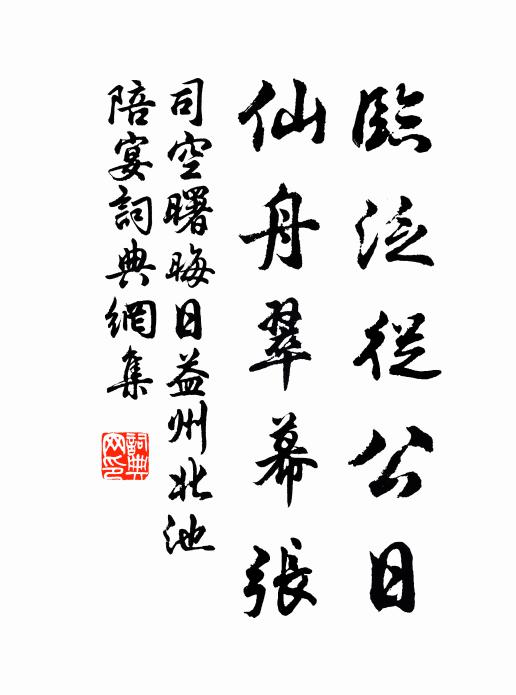 臨泛從公日
仙舟翠幕張
司空曙晦日益州北池
陪宴詞典網集
詞典网印